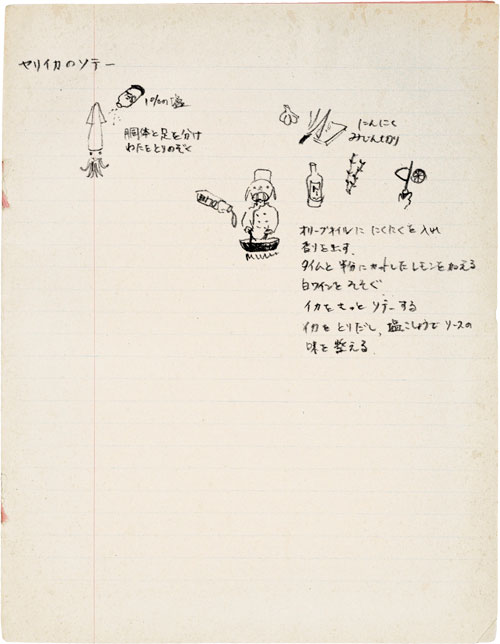 ヤリイカのソテー
10%の塩
胴体と足を分け
わたをとりのぞく
にんにく
みじん切り
オリーブオイルに にくにくを入れ
香りを出す。
タイムと半分にカットしたレモンを加える
白ワインをそそぐ。
イカをさっと ソテーする
イカをとりだし、塩こしょうで ソースの
味を整える。